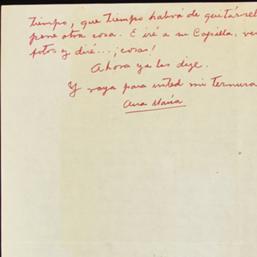 tiempo, que tiempo habrá de quitársel
pene otra cosa. E iré a su Capilla, ve
fotos y diré...¡cosas!
Ahora ya las dije.
Y vaya para usted mi ternura
Ana María